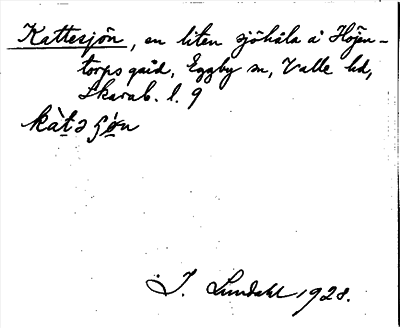 Kattesjön, en liten sjöhåla å Höjen-
torps gård, Eggby sn, Valle hd,
Skarab. l. 9
kàtə ʂön
I. Lundahl 1928.